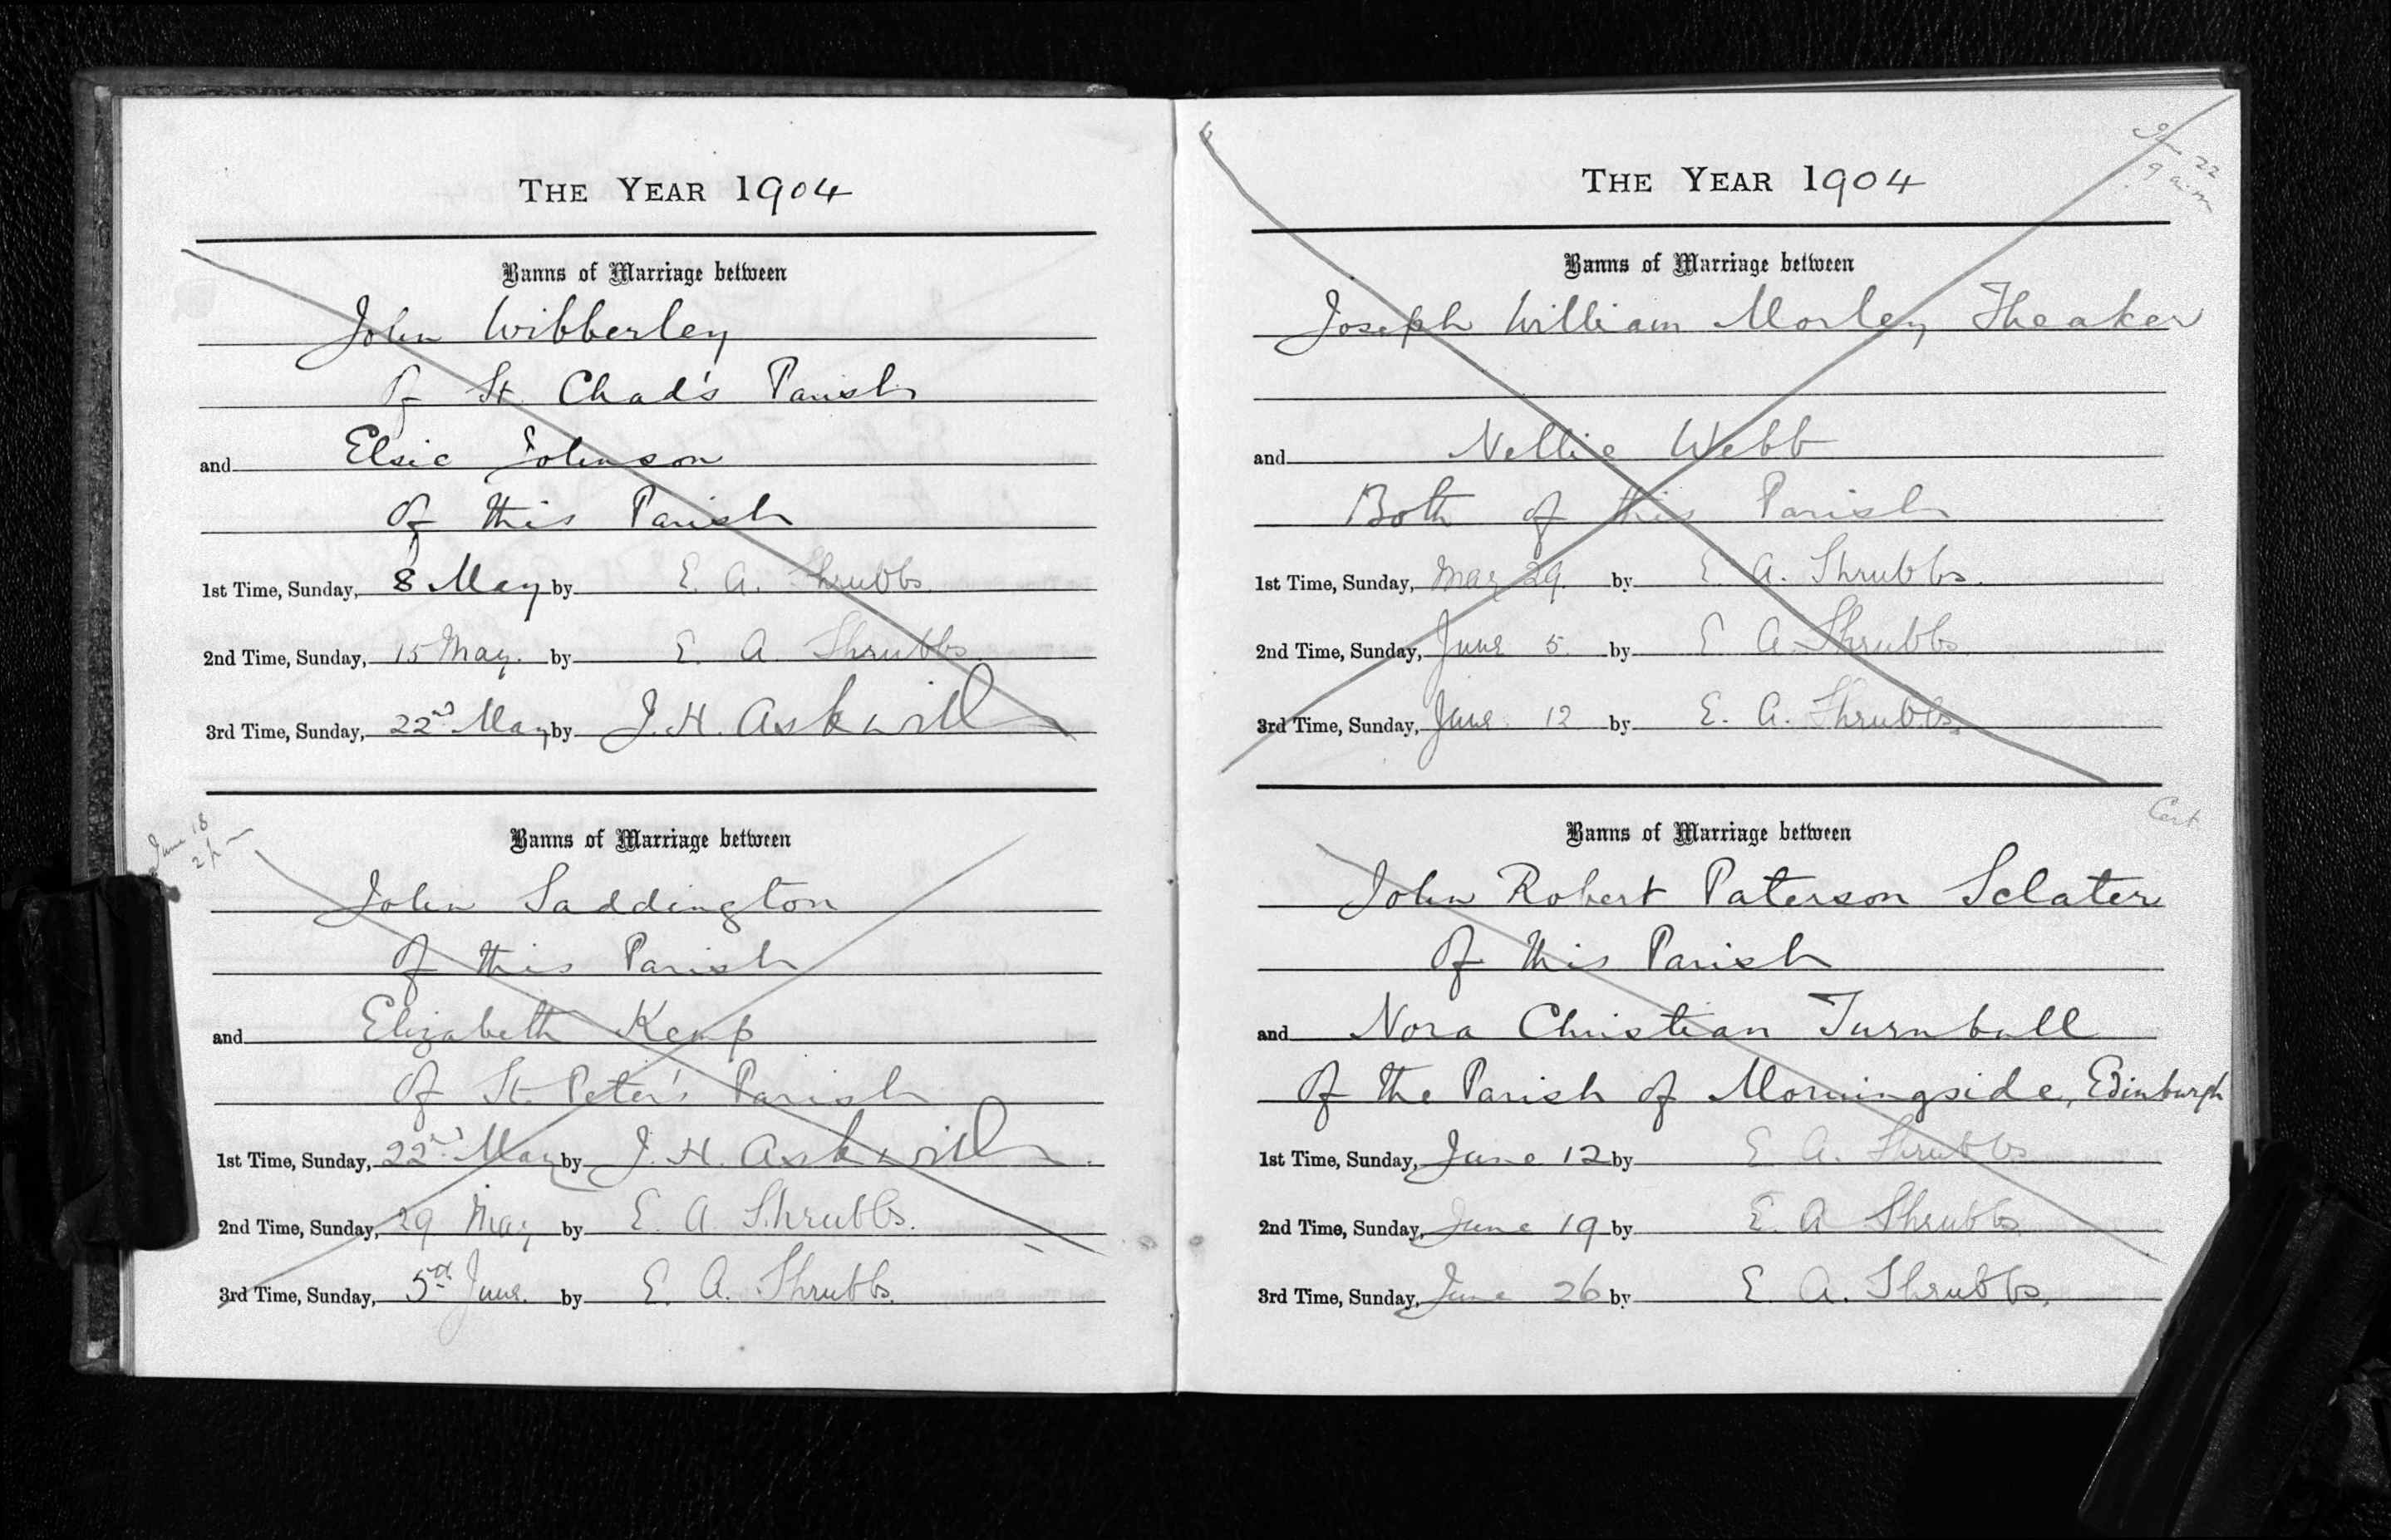 THE YEAR 1904
Banns of Marriage between
John Wibberley
of St. Chad's Parish
and Elsie Johnson
of this Parish
1st Time, Sunday, 8 May by E. A. Shrubbs.
2nd Time, Sunday, 15 May. by E. A. Shrubbs
3rd Time, Sunday, 22nd May by J. H. Askwith
June 18
2
Banns of Marriage between
John Saddington
of this Parish
and Elizabeth Kemp
of St. Peter's Parish
1st Time, Sunday, 22nd May by J. H. Askwith.
2nd Time, Sunday, 29 May by E. A. Shrubbs.
3rd Time, Sunday, 5th June. by E. A. Shrubbs.
THE YEAR 1904
22
9 a.m
Banns of Marriage between
Joseph William Morley Theaker
and Nellie Webb
Both of this Parish
1st Time, Sunday, May 29. by E. A. Shrubbs.
2nd Time, Sunday, June 5. by E A Shrubbs
3rd Time, Sunday, June 12 by E. A. Shrubbs.
Cert.
Banns of Marriage between
John Robert Paterson Sclater
of this Parish
and Nora Christian Turnbull
of the Parish of Morningside, Edinburgh
1st Time, Sunday, June 12 by E A. Shrubbs
2nd Time, Sunday, June 19 by E. A Shrubbs
3rd Time, Sunday, June 26 by E A. Shrubbs.